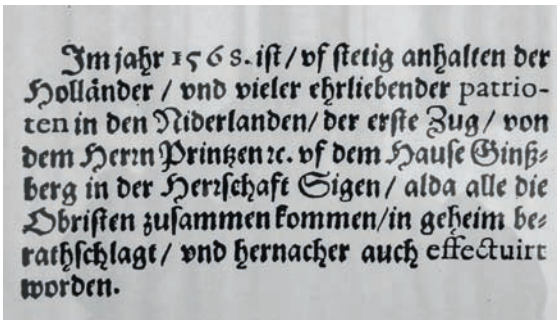 Im jahr 1568. ist / vf stetig anhalten der
Holländer / vnd vieler ehrliebender patrio-
ten in den Niderlanden / der erste Zug / von
dem Herrn Printzen ꝛc. vf dem Hause Ginß-
berg in der Herrschafft Sigen / alda alle die
Obristen zusammen kommen / in geheim be-
rathschlagt / vnd hernacher auch effectuirt
worden.